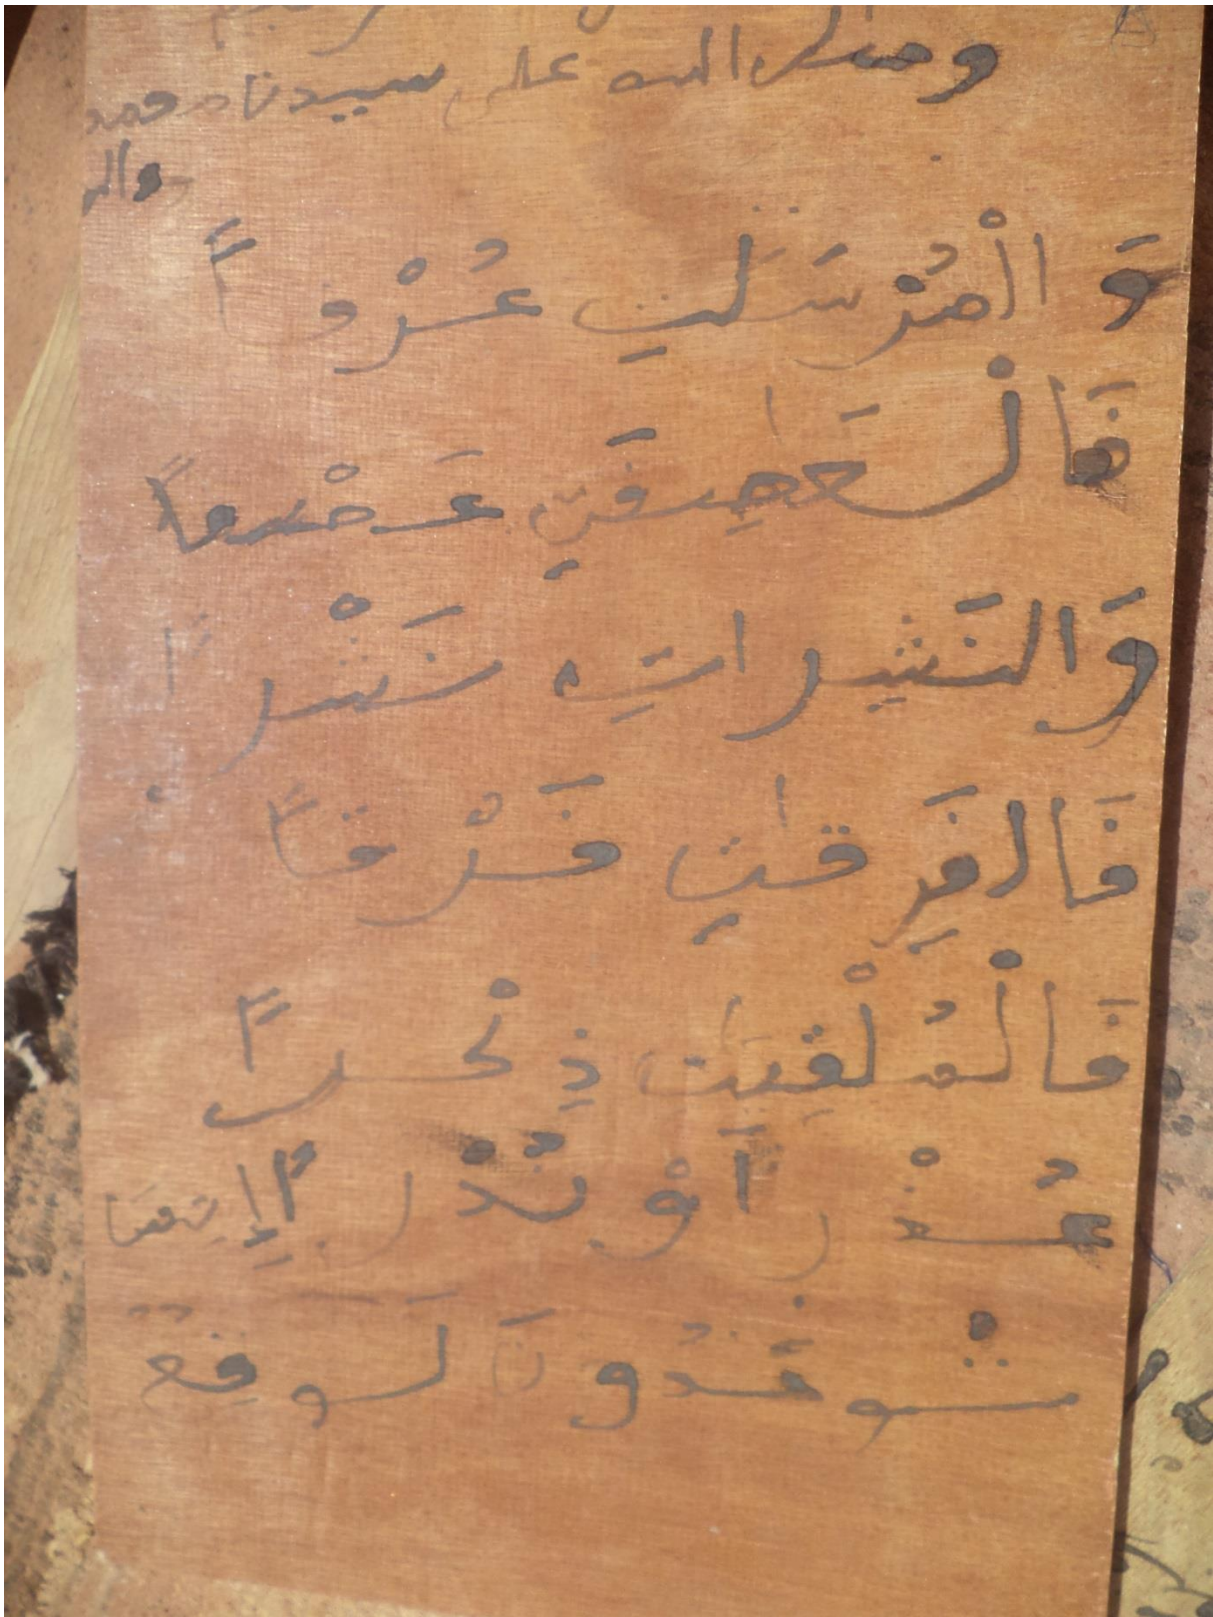 وصلى الله على سيدنا محمد
واله
وَالْمُرْسَلَٰتِ عُرْفاً
فَالْعَٰصِفَٰتِ عَصْفاً
وَالنَّشِرَاتِ نَشْراً
فَالفَٰرِقَٰتِ فَرْقاً
فَالْمُلْقِيَٰت ذِكْراً
عُذْراً أَوْ نُذْراً إِنَّمَا
تُوعَدُونَ لَوَٰقِعٌ